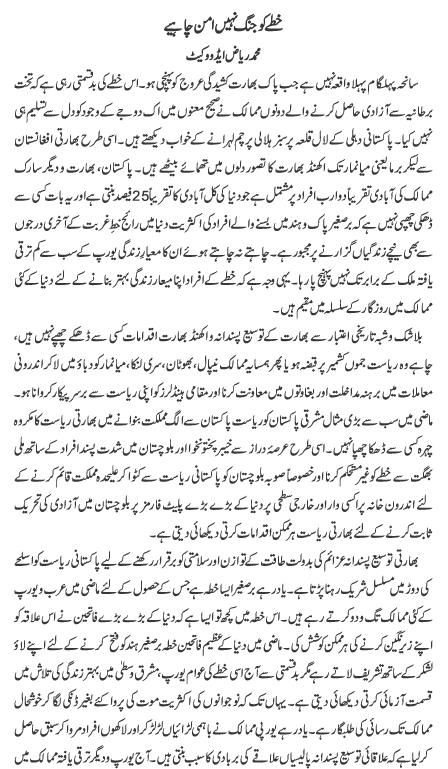 خطے کو جنگ نہیں امن چاہیے
محمد ریاض ایڈووکیٹ
سانحہ پہلگام پہلا واقعہ نہیں ہے جب پاک بھارت کشیدگی عروج کو پہنچی ہو۔ اس خطے کی بدقسمتی رہی ہے کہ تخت
برطانیہ سے آزادی حاصل کرنے والے دونوں ممالک نے صحیح معنوں میں اک دوجے کے وجود کو دل سے تسلیم ہی
نہیں کیا۔ پاکستانی دہلی کے لال قلعہ پر سبز ہلالی پرچم لہرانے کے خواب دیکھتے ہیں۔ اسی طرح بھارتی افغانستان
سے لیکر برما یعنی میانمار تک اکھنڈ بھارت کا تصور دلوں میں تھمائے بیٹھے ہیں۔ پاکستان، بھارت و دیگر سارک
ممالک کی آبادی تقریباً دو ارب افراد پر مشتمل ہے جو دنیا کی کل آبادی کا تقریباً 25 فیصد بنتی ہے اور یہ بات کسی سے
ڈھکی چھپی نہیں ہے کہ برصغیر پاک و ہند میں بسنے والے افراد کی اکثریت دنیا میں رائج خط غربت کے آخری درجوں
سے بھی نیچے زندگیاں گزارنے پر مجبور ہے۔ چاہتے نہ چاہتے ہوئے ان کا معیار زندگی یورپ کے سب سے کم ترقی
یافتہ ملک کے برابر تک نہیں پہنچ پا رہا۔ یہی وجہ ہے کہ خطے کے افراد اپنا معیار زندگی بہتر بنانے کے لئے دنیا کے کئی
ممالک میں روزگار کے سلسلہ میں مقیم ہیں۔
بلاشک و شبہ تاریخی اعتبار سے بھارت کے توسیع پسندانہ و اکھنڈ بھارت اقدامات کسی سے ڈھکے چھپے نہیں ہیں،
چاہے وہ ریاست جموں کشمیر پر قبضہ ہو یا پھر ہمسایہ ممالک نیپال، بھوٹان، سری لنکا، میانمار کو دباؤ میں لا کر اندرونی
معاملات میں برہنہ مداخلت اور بغاوتوں میں معاونت کرنا اور مقامی ہینڈلرز کو اپنی ریاست سے برسرپیکار کروانا ہو۔
ماضی میں سب سے بڑی مثال مشرقی پاکستان کو ریاست پاکستان سے الگ مملکت بنوانے میں بھارتی ریاست کا مکروہ
چہرہ کسی سے ڈھکا چھپا نہیں۔ اسی طرح عرصہ دراز سے خیبر پختونخوا اور بلوچستان میں شدت پسند افراد کے ساتھ ملی
بھگت سے خطے کو غیر مستحکم کرنا اور خصوصاً صوبہ بلوچستان کو پاکستانی ریاست سے کٹوا کر علیحدہ مملکت قائم کرنے کے
لئے اندرون خانہ پراکسی وار اور خارجی سطح پر دنیا کے بڑے بڑے پلیٹ فارمز پر بلوچستان میں آزادی کی تحریک
ثابت کرنے کے لئے بھارتی ریاست ہر ممکن اقدامات کرتی دیکھائی دیتی ہے۔
بھارتی توسیع پسندانہ عزائم کی بدولت طاقت کے توازن اور سلامتی کو برقرار رکھنے کے لیے پاکستانی ریاست کو اسلحے
کی دوڑ میں مسلسل شریک رہنا پڑتا ہے۔ یاد رہے برصغیر ایسا خطہ ہے جس کے حصول کے لئے ماضی میں عرب و یورپ
کے کئی ممالک تگ و دو کرتے رہے ہیں۔ اس خطہ میں کچھ تو ایسا ہے کہ دنیا کے بڑے بڑے فاتحین نے اس علاقہ کو
اپنے زیر نگین کرنے کی ہر ممکن کوشش کی۔ ماضی میں دنیا کے عظیم فاتحین خطہ برصغیر ہند کو فتح کرنے کے لئے اپنے لاؤ
لشکر کے ساتھ تشریف لاتے رہے مگر بدقسمتی سے آج اسی خطے کی عوام یورپ، مشرق وسطیٰ میں بہتر زندگی کی تلاش میں
قسمت آزمائی کرتی دیکھائی دیتی ہے۔ یہاں تک کہ نوجوانوں کی اکثریت موت کی پروا کئے بغیر ڈنکی لگا کر خوشحال
ممالک تک رسائی کی طلبگار ہے۔ یاد رہے یورپی ممالک نے باہمی لڑائیاں لڑ لڑ کر اور لاکھوں افراد مروا کر سبق حاصل
کر لیا ہے کہ علاقائی توسیع پسندانہ پالیسیاں علاقے کی بربادی کا سبب بنتی ہیں۔ آج یورپ و دیگر ترقی یافتہ ممالک میں